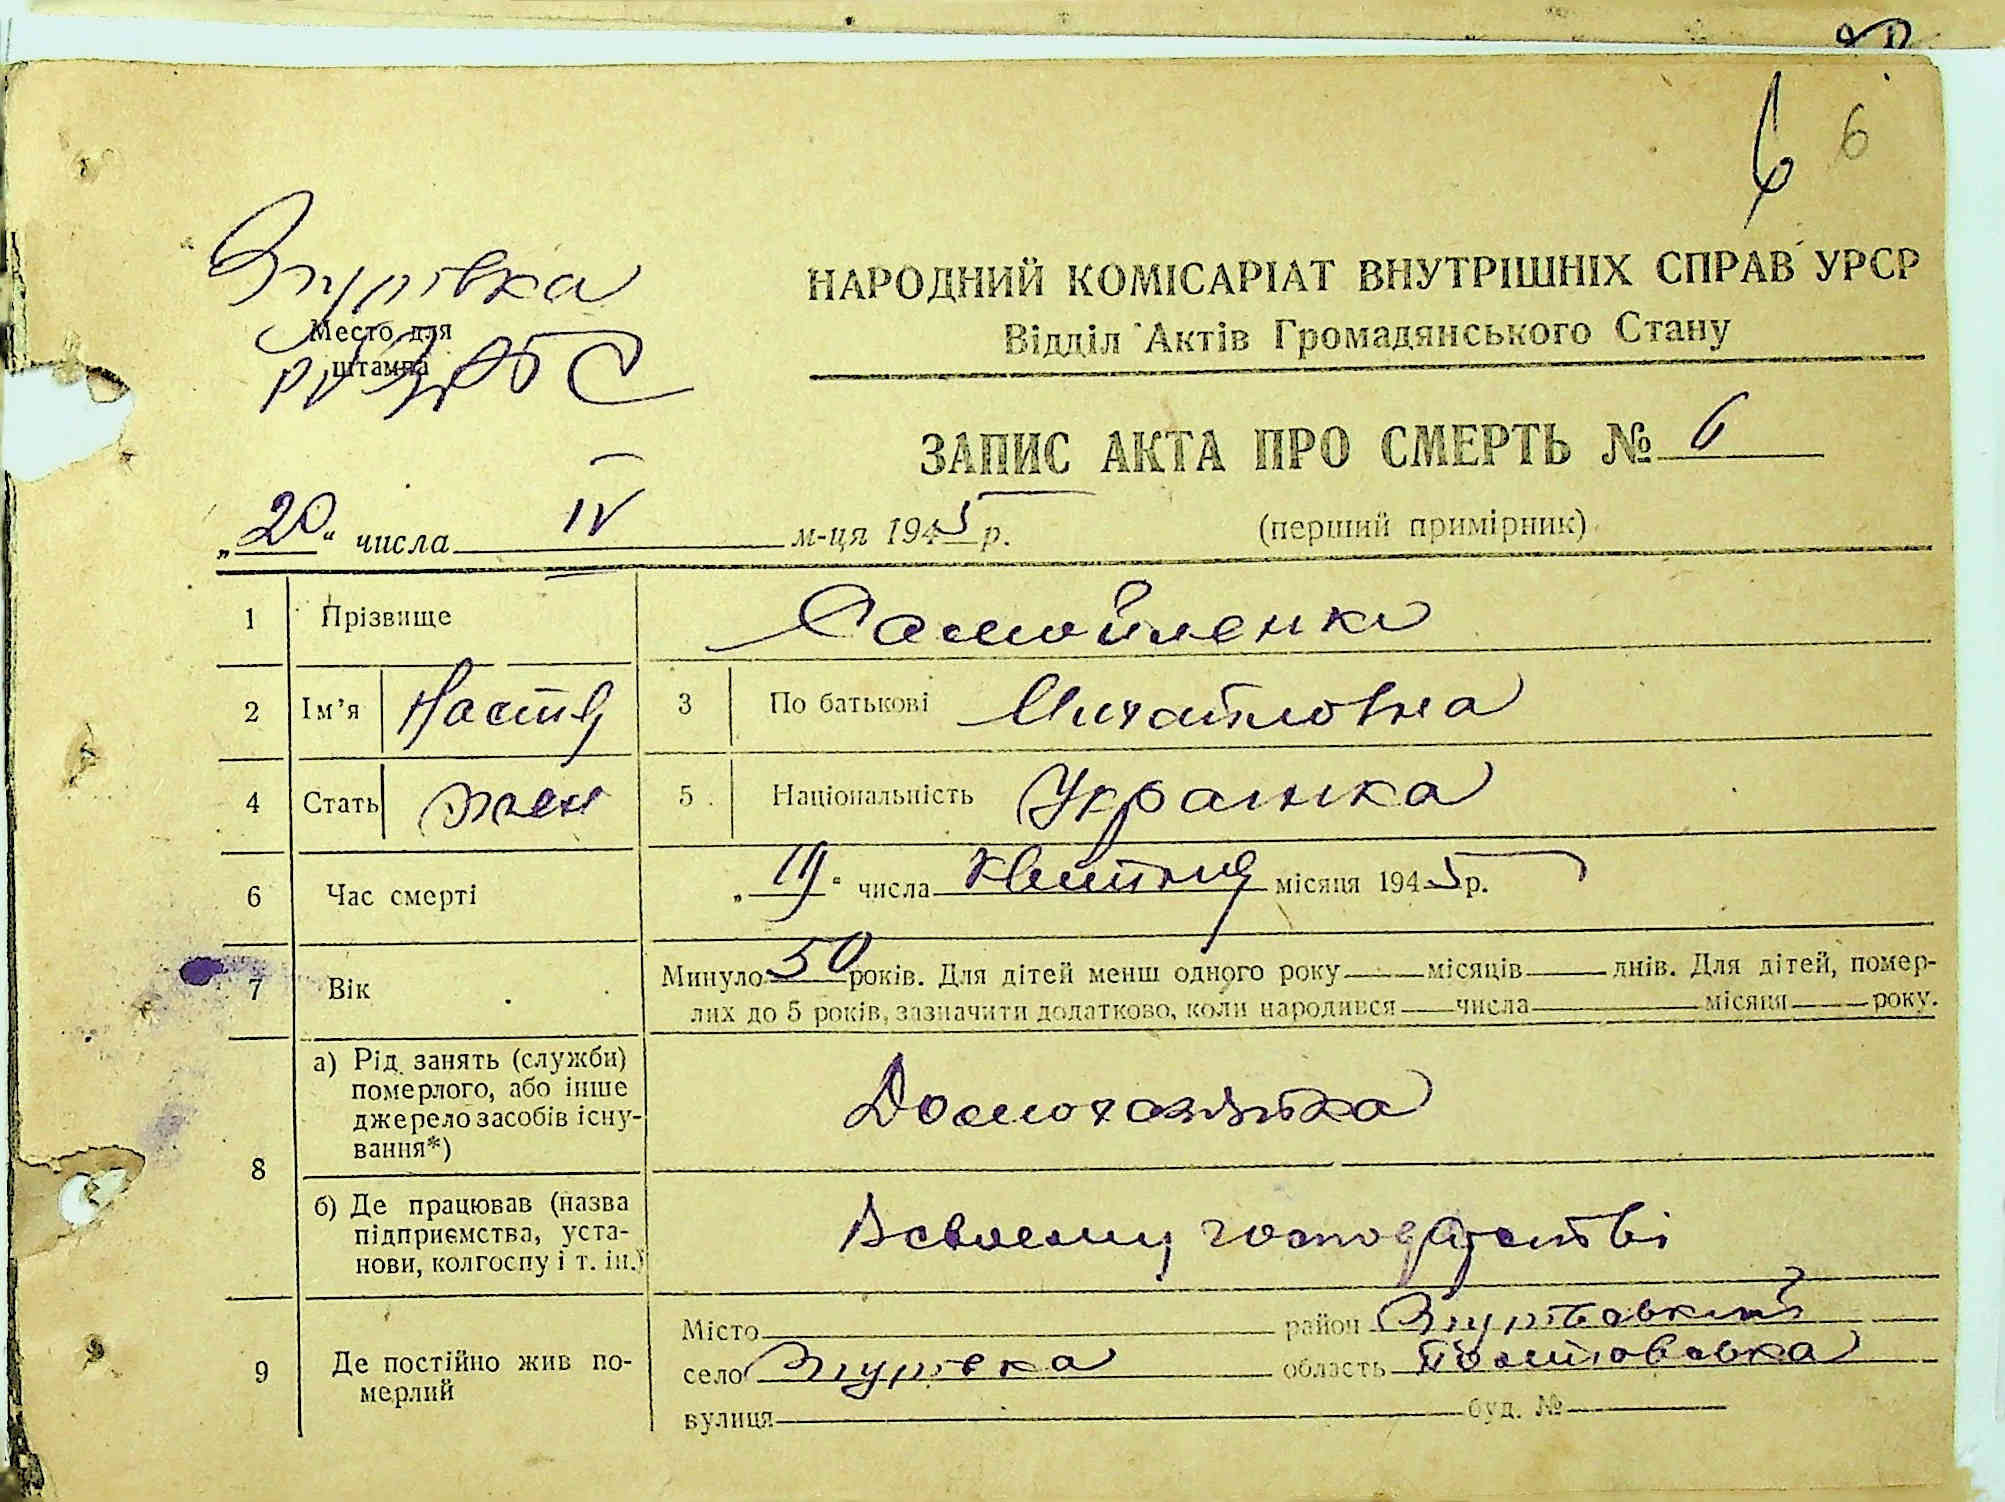 6 6
Згурівка
Место для
штампа
РВ ЗАГС
НАРОДНИЙ КОМІСАРІАТ ВНУТРІШНІХ СПРАВ УРСР
Відділ Актів Громадянського Стану
ЗАПИС АКТА ПРО СМЕРТЬ № 6
„20“ числа IV м-ця 1945 р.
(перший примірник)
1 Прізвище Самойленко
2 Ім'я Настя 3 По батькові Михайловна
4 Стать жен 5 Національність Українка
6 Час смерті „19“ числа квітня місяця 1945 р.
7 Вік Минуло 50 років. Для дітей менш одного року місяців днів. Для дітей, помер-
лих до 5 років, зазначити додатково, коли народився числа місяця року.
8 а) Рід занять (служби)
померлого, або інше
джерело засобів існу-
вання*)
Домохазяйка
б) Де працював (назва
підприємства, уста-
нови, колгоспу і т. ін.)
В своєму господарстві
9 Де постійно жив по-
мерлий
Місто район Згурівський
село Згурівка область Полтавська
вулиця буд. №